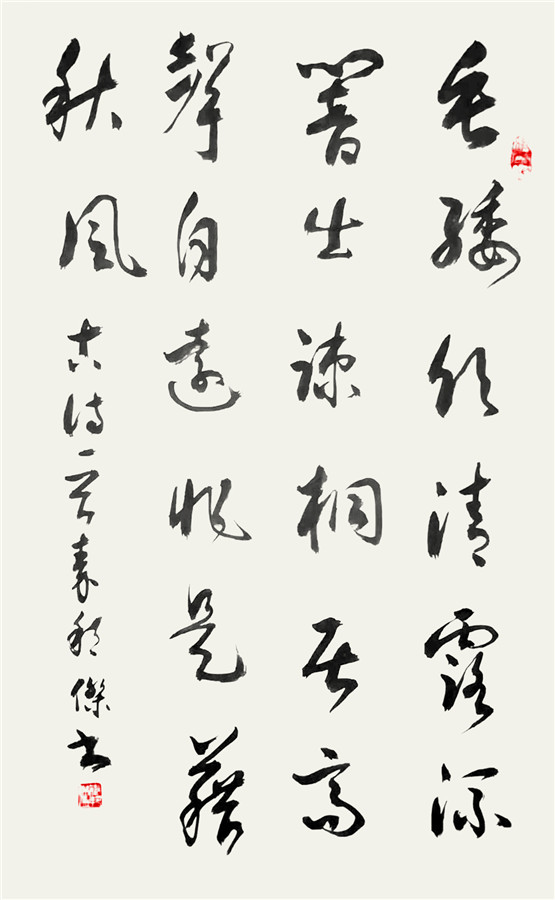 垂緌飲清露流
響出疎桐居高
聲自遠非是藉
秋風 古詩一首 傑書